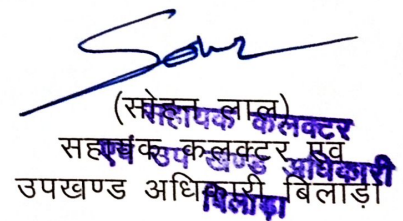 (सोहन लाल)
सहायक कलक्टर एवं
उपखण्ड अधिकारी, बिलाड़ा
सहायक कलक्टर
एवं उप खण्ड अधिकारी
बिलाड़ा